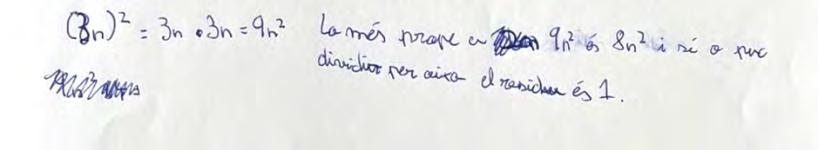 (3n)² = 3n · 3n = 9n² Lo més prope a 9n² és 8n² i sí o puc
dividir per aixo el residu és 1.